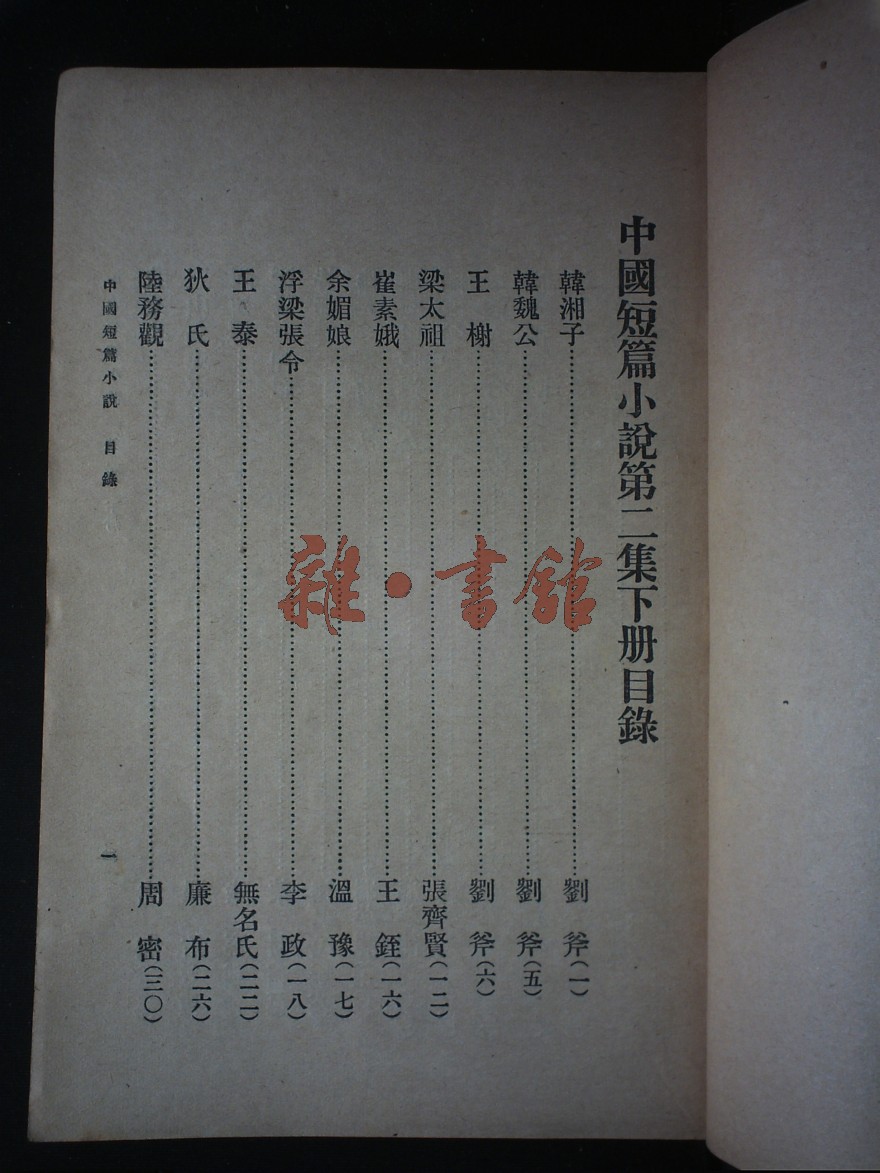 中國短篇小說第二集下册目錄
韓湘子……劉斧(一)
韓魏公……劉斧(五)
王榭……劉斧(六)
梁太祖……張齊賢(一二)
崔素娥……王銍(一六)
余媚娘……溫豫(一七)
浮梁張令……李政(一八)
王泰……無名氏(二二)
狄氏……廉布(二六)
陸務觀……周密(三〇)
中國短篇小說 目錄
一
雜·書館